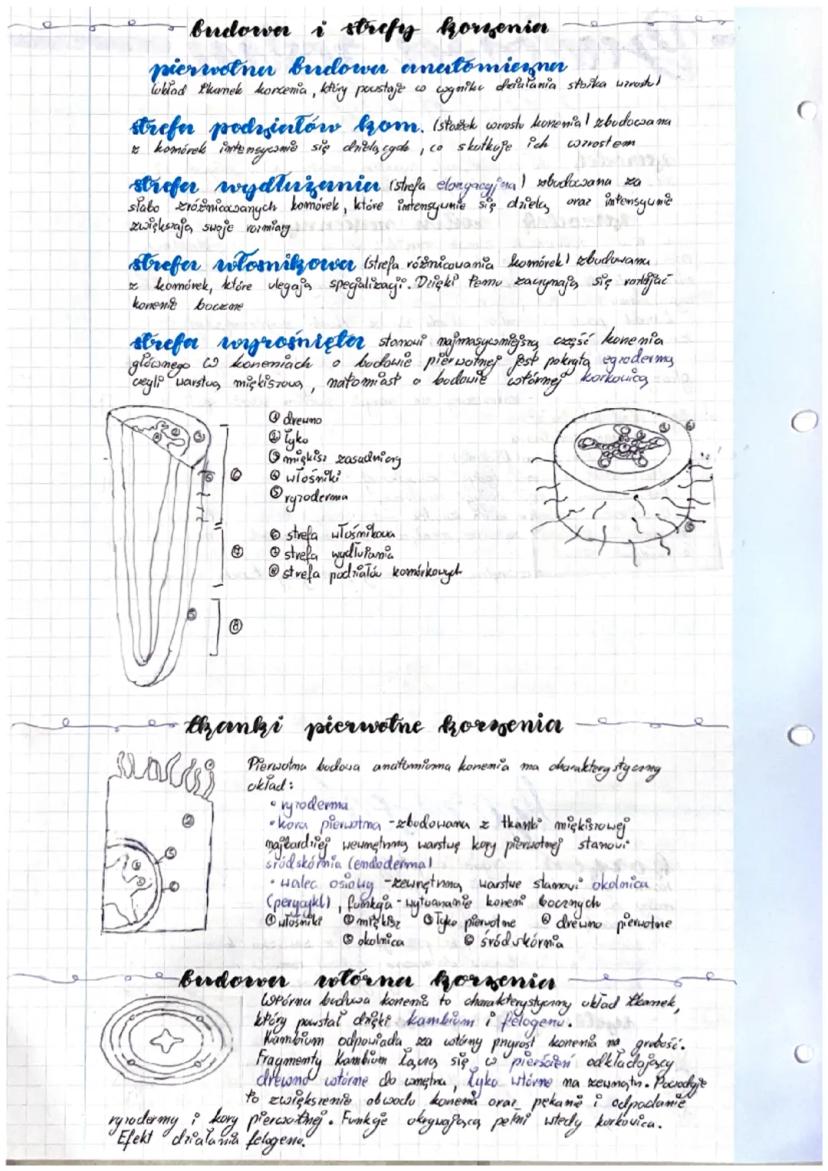 budowa i strefy korzenia
pierwotna budowa anatomiczna
(układ tkanek korzenia, który powstaje w wyniku działania stożka wzrostu)
strefa podziałów kom. (stożek wzrostu korzenia) zbudowana
z komórek intensywnie się dzielących, co skutkuje ich wzrostem
strefa wydłużania (strefa elongacyjna) zbudowana za
słabo zróżnicowanych komórek, które intensywnie się dzielą oraz intensywnie
zwiększają swoje rozmiary
strefa włośnikowa (strefa różnicowania komórek) zbudowana
z komórek, które ulegają specjalizacji. Dzięki temu zaczynają się rozwijać
korzenie boczne
strefa wyrośnięta stanowi najmasywniejszą część korzenia
głównego W korzeniach o budowie pierwotnej jest pokryta egzodermą
czyli warstwą miękiszową, natomiast o budowie wtórnej korkowicą
① drewno
② łyko
③ miękisz zasadniczy
④ włośniki
⑤ ryzoderma
⑥ strefa włośnikowa
⑦ strefa wydłużania
⑧ strefa podziałów komórkowych
⑥
⑦
⑧
tkanki pierwotne korzenia
Pierwotna budowa anatomiczna korzenia ma charakterystyczny
układ:
• ryzoderma
• kora pierwotna - zbudowana z tkanki miękiszowej
najbardziej wewnętrzną warstwę kory pierwotnej stanowi
śródskórnia (endoderma)
• walec osiowy - zewnętrzną warstwę stanowi okolnica
(perycykl), funkcja - wytwarzanie korzeni bocznych
① włośniki ② miękisz ③ łyko pierwotne ④ drewno pierwotne
⑤ okolnica ⑥ śródskórnia
budowa wtórna korzenia
Wtórna budowa korzenia to charakterystyczny układ tkanek,
który powstał dzięki kambium i felogenu.
Kambium odpowiada za wtórny przyrost korzenia na grubość.
Fragmenty kambium łączą się w pierścień odkładający
drewno wtórne do wnętrza, łyko wtórne na zewnątrz. Powoduje
to zwiększenie obwodu korzenia oraz pękanie i odpadanie
ryzodermy i kory pierwotnej. Funkcje okrywającą pełni wtedy korkowica.
Efekt działania felogenu.